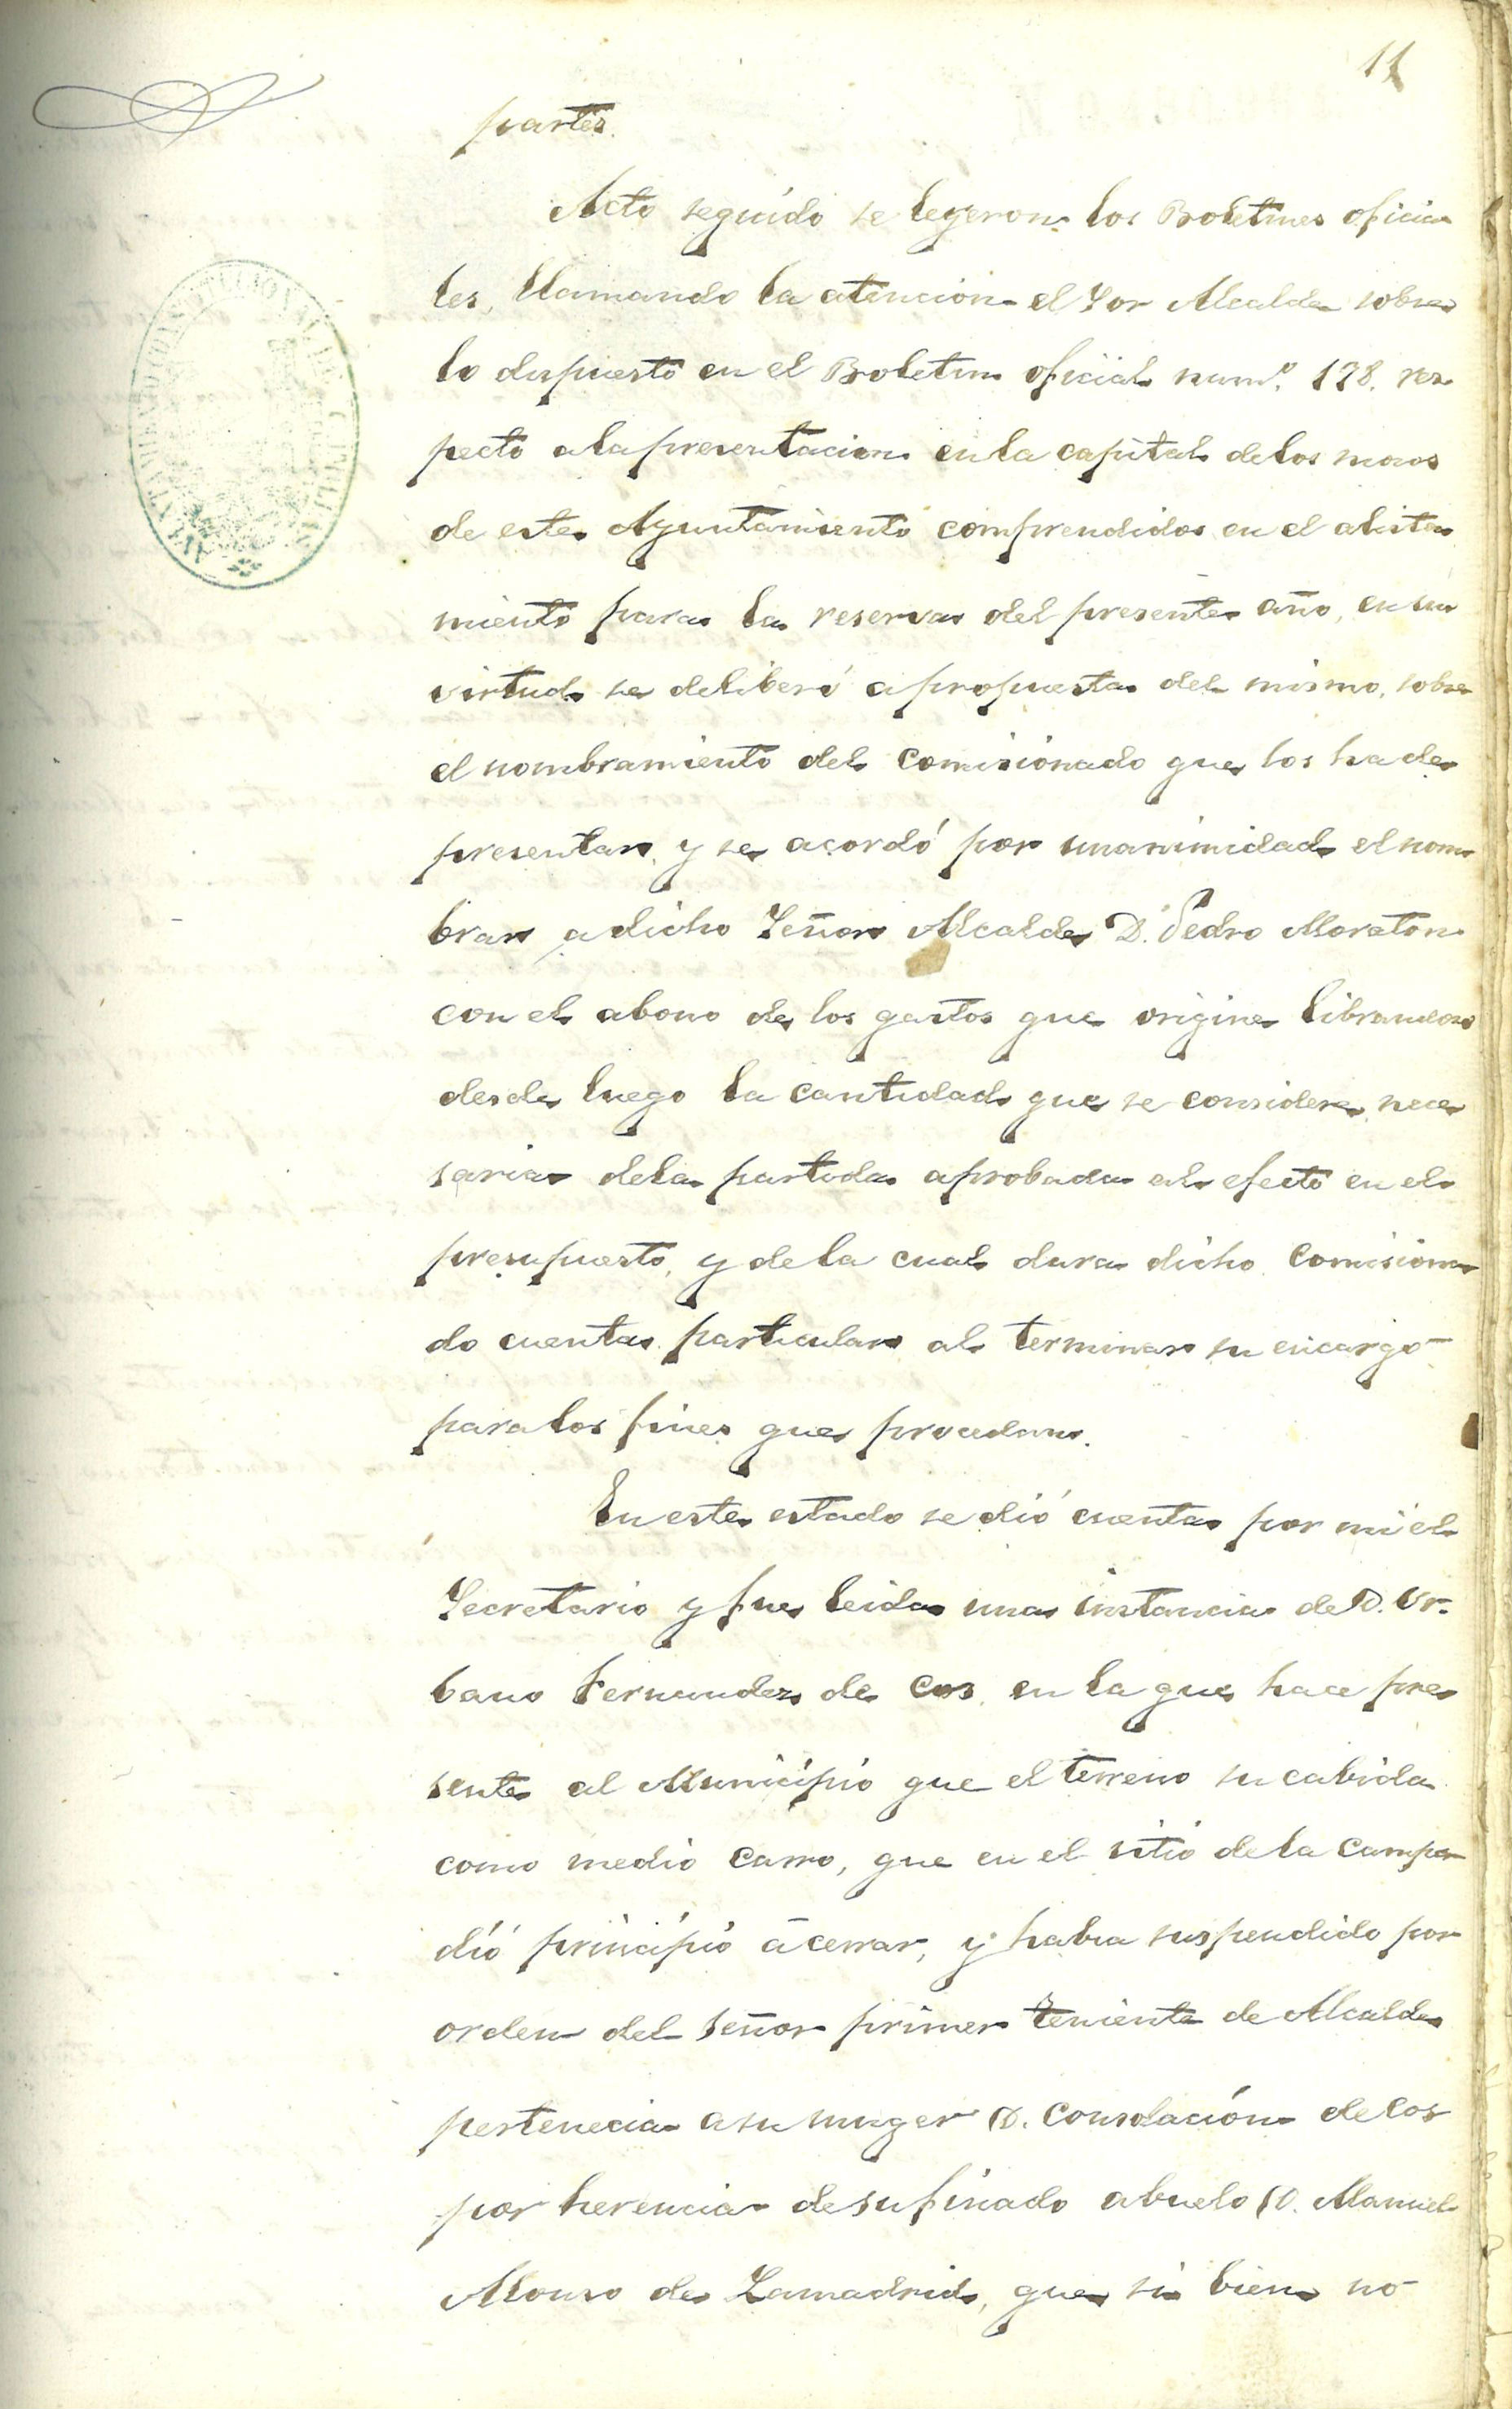 11
partes.
Acto seguido se leyeron los Boletines oficia
les, llamando la atencion el Sor Alcalde sobre
lo dispuesto en el Boletin oficial num.º 178. res
pecto a la presentacion en la capital de los mozos
de este Ayuntamiento comprendidos en el alista
miento para la reserva del presente año, en su
virtud se deliberó a propuesta del mismo, sobre
el nombramiento del comisionado que los ha de
presentar, y se acordó por unanimidad el nom
brar a dicho Señor Alcalde D. Pedro Moraton
con el abono de los gastos que origine librandose
desde luego la cantidad que se considere nece
saria de la partida aprobada al efecto en el
presupuesto, y de la cual dara dicho comisiona
do cuenta particular al terminar su encargo
para los fines que procedan.
En este estado se dió cuenta por mi el
Secretario y fue leida una instancia de D. Ur-
bano Fernandez de Cos, en la que hace pre
sente al Municipio que el terreno su cabida
como medio carro, que en el sitio de la Campa
dió principio á cerrar, y habia suspendido por
orden del Señor primer teniente de Alcalde
pertenecia a su muger D. Consolación de Cos
por herencia de su finado abuelo D. Manuel
Alonso de Lamadrid, que si bien no